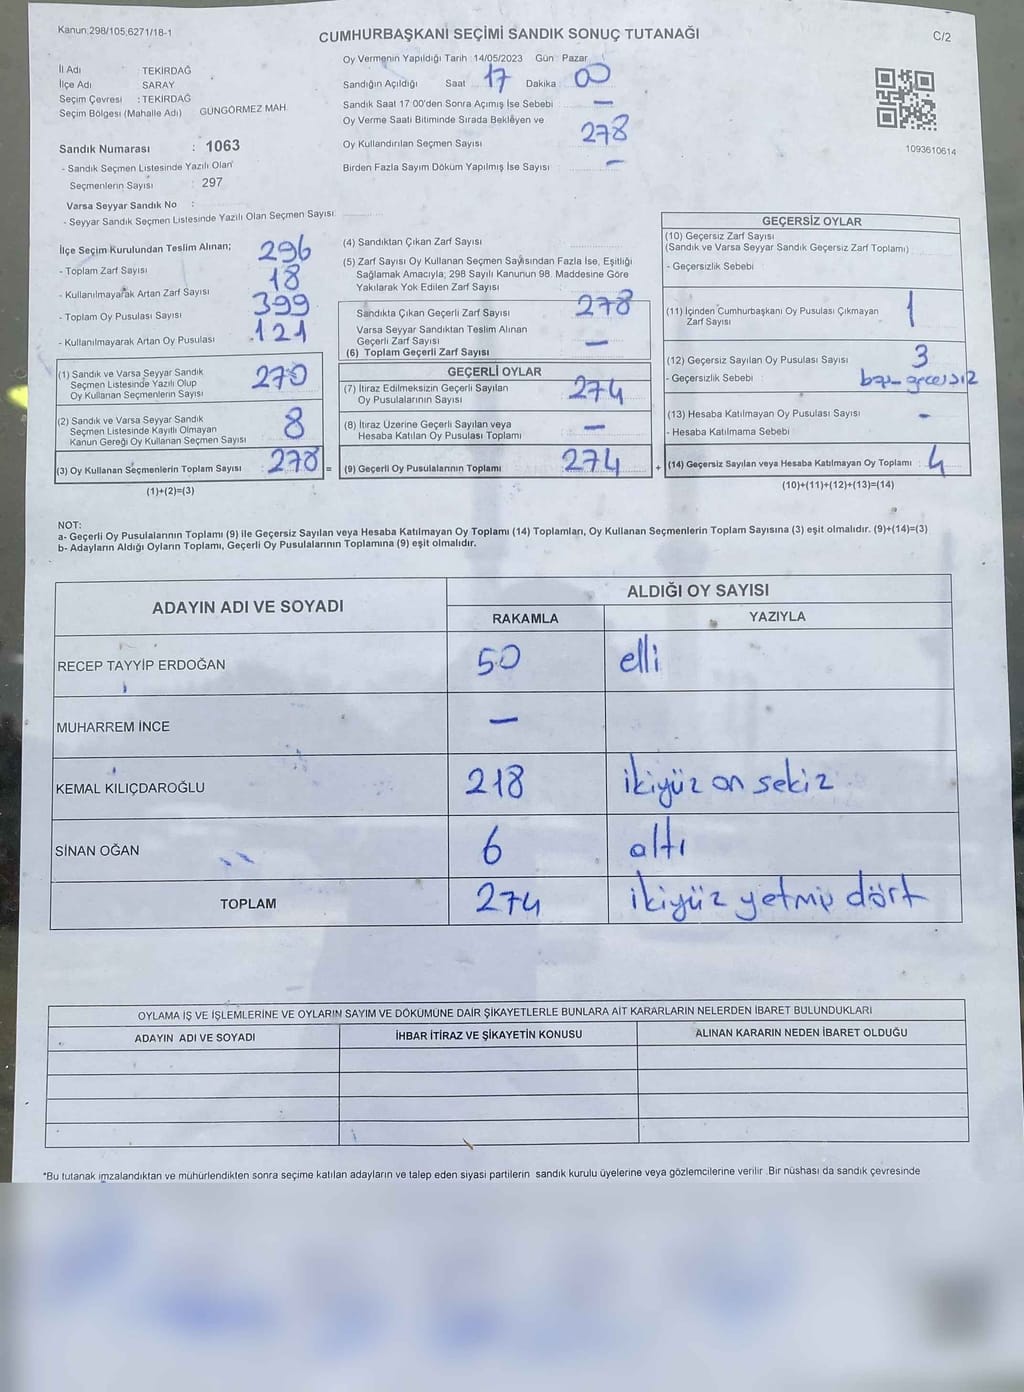 Kanun:298/105,6271/18-1
CUMHURBAŞKANI SEÇİMİ SANDIK SONUÇ TUTANAĞI
C/2
İl Adı TEKİRDAĞ
İlçe Adı SARAY
Seçim Çevresi : TEKİRDAĞ
Seçim Bölgesi (Mahalle Adı) GÜNGÖRMEZ MAH.
Oy Vermenin Yapıldığı Tarih : 14/05/2023 Gün : Pazar
Sandığın Açıldığı Saat : 17 Dakika : 00
Sandık Saat 17 00'den Sonra Açımış İse Sebebi —
Oy Verme Saati Bitiminde Sırada Bekleyen ve
Oy Kullandırılan Seçmen Sayısı 278
Birden Fazla Sayım Döküm Yapılmış İse Sayısı : —
1093610614
Sandık Numarası : 1063
- Sandık Seçmen Listesinde Yazılı Olan
Seçmenlerin Sayısı : 297
Varsa Seyyar Sandık No :
- Seyyar Sandık Seçmen Listesinde Yazılı Olan Seçmen Sayısı:
İlçe Seçim Kurulundan Teslim Alınan;
- Toplam Zarf Sayısı 296
- Kullanılmayarak Artan Zarf Sayısı 18
- Toplam Oy Pusulası Sayısı 399
- Kullanılmayarak Artan Oy Pusulası 121
(1) Sandık ve Varsa Seyyar Sandık
Seçmen Listesinde Yazılı Olup
Oy Kullanan Seçmenlerin Sayısı 270
(2) Sandık ve Varsa Seyyar Sandık
Seçmen Listesinde Kayıtlı Olmayan
Kanun Gereği Oy Kullanan Seçmen Sayısı 8
(3) Oy Kullanan Seçmenlerin Toplam Sayısı : 278 =
(1)+(2)=(3)
(4) Sandıktan Çıkan Zarf Sayısı
(5) Zarf Sayısı Oy Kullanan Seçmen Sayısından Fazla İse, Eşitliği
Sağlamak Amacıyla; 298 Sayılı Kanunun 98. Maddesine Göre
Yakılarak Yok Edilen Zarf Sayısı
Sandıkta Çıkan Geçerli Zarf Sayısı 278
Varsa Seyyar Sandıktan Teslim Alınan
Geçerli Zarf Sayısı —
(6) Toplam Geçerli Zarf Sayısı
GEÇERLİ OYLAR
(7) İtiraz Edilmeksizin Geçerli Sayılan
Oy Pusulalarının Sayısı 274
(8) İtiraz Üzerine Geçerli Sayılan veya
Hesaba Katılan Oy Pusulası Toplamı —
(9) Geçerli Oy Pusulalarının Toplamı 274 +
GEÇERSİZ OYLAR
(10) Geçersiz Zarf Sayısı
(Sandık ve Varsa Seyyar Sandık Geçersiz Zarf Toplamı)
- Geçersizlik Sebebi
(11) İçinden Cumhurbaşkanı Oy Pusulası Çıkmayan
Zarf Sayısı 1
(12) Geçersiz Sayılan Oy Pusulası Sayısı 3
- Geçersizlik Sebebi :
(13) Hesaba Katılmayan Oy Pusulası Sayısı -
- Hesaba Katılmama Sebebi
(14) Geçersiz Sayılan veya Hesaba Katılmayan Oy Toplamı : 4
(10)+(11)+(12)+(13)=(14)
NOT:
a- Geçerli Oy Pusulalarının Toplamı (9) ile Geçersiz Sayılan veya Hesaba Katılmayan Oy Toplamı (14) Toplamları, Oy Kullanan Seçmenlerin Toplam Sayısına (3) eşit olmalıdır. (9)+(14)=(3)
b- Adayların Aldığı Oyların Toplamı, Geçerli Oy Pusulalarının Toplamına (9) eşit olmalıdır.
ADAYIN ADI VE SOYADI
ALDIĞI OY SAYISI
RAKAMLA YAZIYLA
RECEP TAYYİP ERDOĞAN 50 elli
MUHARREM İNCE —
KEMAL KILIÇDAROĞLU 218 ikiyüz on sekiz
SİNAN OĞAN 6 altı
TOPLAM 274 ikiyüz yetmiş dört
OYLAMA İŞ VE İŞLEMLERİNE VE OYLARIN SAYIM VE DÖKÜMÜNE DAİR ŞİKAYETLERLE BUNLARA AİT KARARLARIN NELERDEN İBARET BULUNDUKLARI
ADAYIN ADI VE SOYADI İHBAR İTİRAZ VE ŞİKAYETİN KONUSU ALINAN KARARIN NEDEN İBARET OLDUĞU
*Bu tutanak imzalandıktan ve mühürlendikten sonra seçime katılan adayların ve talep eden siyasi partilerin sandık kurulu üyelerine veya gözlemcilerine verilir .Bir nüshası da sandık çevresinde